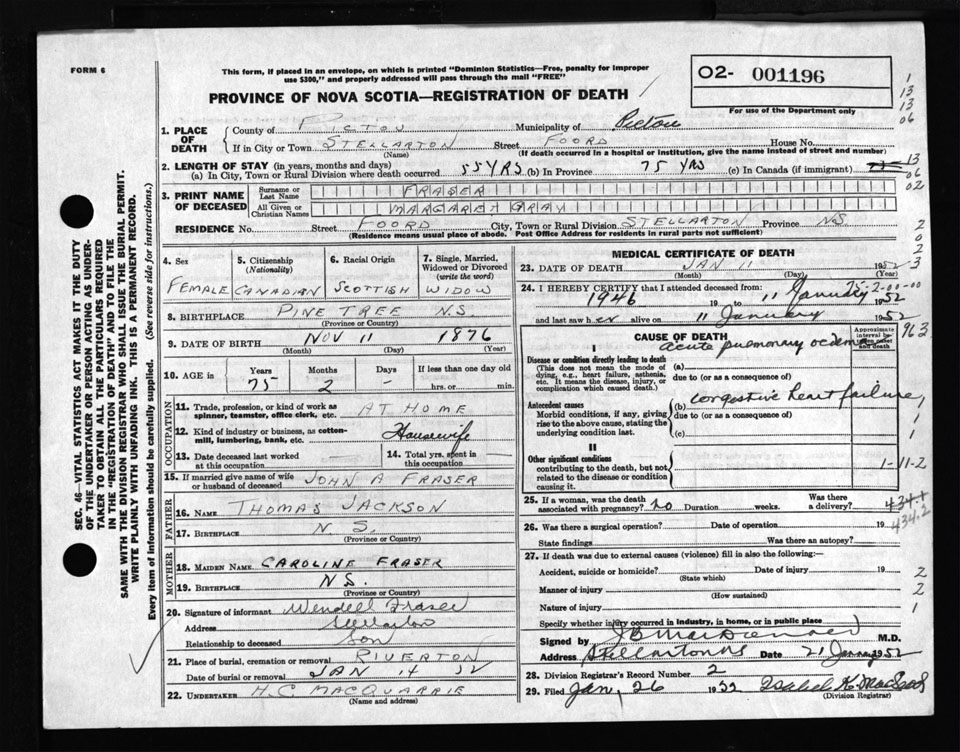 FORM 6
This form, if placed in an envelope, on which is printed "Dominion Statistics—Free, penalty for improper
use $300," and properly addressed will pass through the mail "FREE"
PROVINCE OF NOVA SCOTIA—REGISTRATION OF DEATH
O2- 001196
For use of the Department only
1
13
13
06
1. PLACE OF DEATH { County of PICTOU Municipality of Pictou
If in City or Town STELLARTON Street FOORD House No.
(Name) (If death occurred in a hospital or institution, give the name instead of street and number)
2. LENGTH OF STAY (in years, months and days)
(a) In City, Town or Rural Division where death occurred 55 YRS (b) In Province 75 YRS (c) In Canada (if immigrant)
13
06
02
3. PRINT NAME OF DECEASED { Surname or Last Name FRASER
All Given or Christian Names MARGARET GRAY
RESIDENCE No. Street FOORD City, Town or Rural Division STELLARTON Province N.S
(Residence means usual place of abode. Post Office Address for residents in rural parts not sufficient)
2
0
2
3
4. Sex 5. Citizenship (Nationality) 6. Racial Origin 7. Single, Married, Widowed or Divorced (write the word)
FEMALE CANADIAN SCOTTISH WIDOW
8. BIRTHPLACE PINE TREE N.S
(Province or Country)
9. DATE OF BIRTH NOV 11 1876
(Month) (Day) (Year)
10. AGE in Years Months Days If less than one day old
75 2 – hrs. or min.
OCCUPATION
11. Trade, profession, or kind of work as spinner, teamster, office clerk, etc. AT HOME
12. Kind of industry or business, as cotton-mill, lumbering, bank, etc. Housewife
13. Date deceased last worked at this occupation 14. Total yrs. spent in this occupation
15. If married give name of wife or husband of deceased JOHN A FRASER
FATHER
16. NAME THOMAS JACKSON
17. BIRTHPLACE N.S.
(Province or Country)
MOTHER
18. MAIDEN NAME CAROLINE FRASER
19. BIRTHPLACE N.S.
(Province or Country)
20. Signature of informant Wendell Fraser
Address Stellarton
Relationship to deceased Son
21. Place of burial, cremation or removal RIVERTON
Date of burial or removal JAN 14 52
22. UNDERTAKER H.C MACQUARRIE
(Name and address)
MEDICAL CERTIFICATE OF DEATH
23. DATE OF DEATH JAN 11 1952
(Month) (Day) (Year)
24. I HEREBY CERTIFY that I attended deceased from: 75-2-00-00
1946 19 to 11 January 1952
and last saw her alive on 11 January 1952
CAUSE OF DEATH
Approximate interval between onset and death
963
acute pulmonary oedema
I
Disease or condition directly leading to death (a)
(This does not mean the mode of dying, e.g., heart failure, asthenia, etc. It means the disease, injury, or complication which caused death.)
due to (or as a consequence of)
Antecedent causes (b) congestive heart failure
Morbid conditions, if any, giving rise to the above cause, stating the underlying condition last.
due to (or as a consequence of)
(c)
1
1
1
II
Other significant conditions
contributing to the death, but not related to the disease or condition causing it.
1-11-2
25. If a woman, was the death associated with pregnancy? no Duration weeks. Was there a delivery?
434.1
434.2
26. Was there a surgical operation? Date of operation 19
State findings Was there an autopsy?
27. If death was due to external causes (violence) fill in also the following:—
Accident, suicide or homicide? Date of injury 19
(State which)
2
Manner of injury
(How sustained)
2
Nature of injury
1
Specify whether injury occurred in industry, in home, or in public place
Signed by M.D.
Address Stellarton NS Date 21 January 1952
28. Division Registrar's Record Number 2
29. Filed Jan, 26 1952
(Division Registrar)
SEC. 46—VITAL STATISTICS ACT MAKES IT THE DUTY
OF THE UNDERTAKER OR PERSON ACTING AS UNDERTAKER
TO OBTAIN ALL THE PARTICULARS REQUIRED
IN THE "REGISTRATION OF DEATH" AND TO FILE THE
SAME WITH THE DIVISION REGISTRAR WHO SHALL ISSUE THE BURIAL PERMIT.
WRITE PLAINLY WITH UNFADING INK. THIS IS A PERMANENT RECORD.
Every item of information should be carefully supplied. (See reverse side for instructions.)